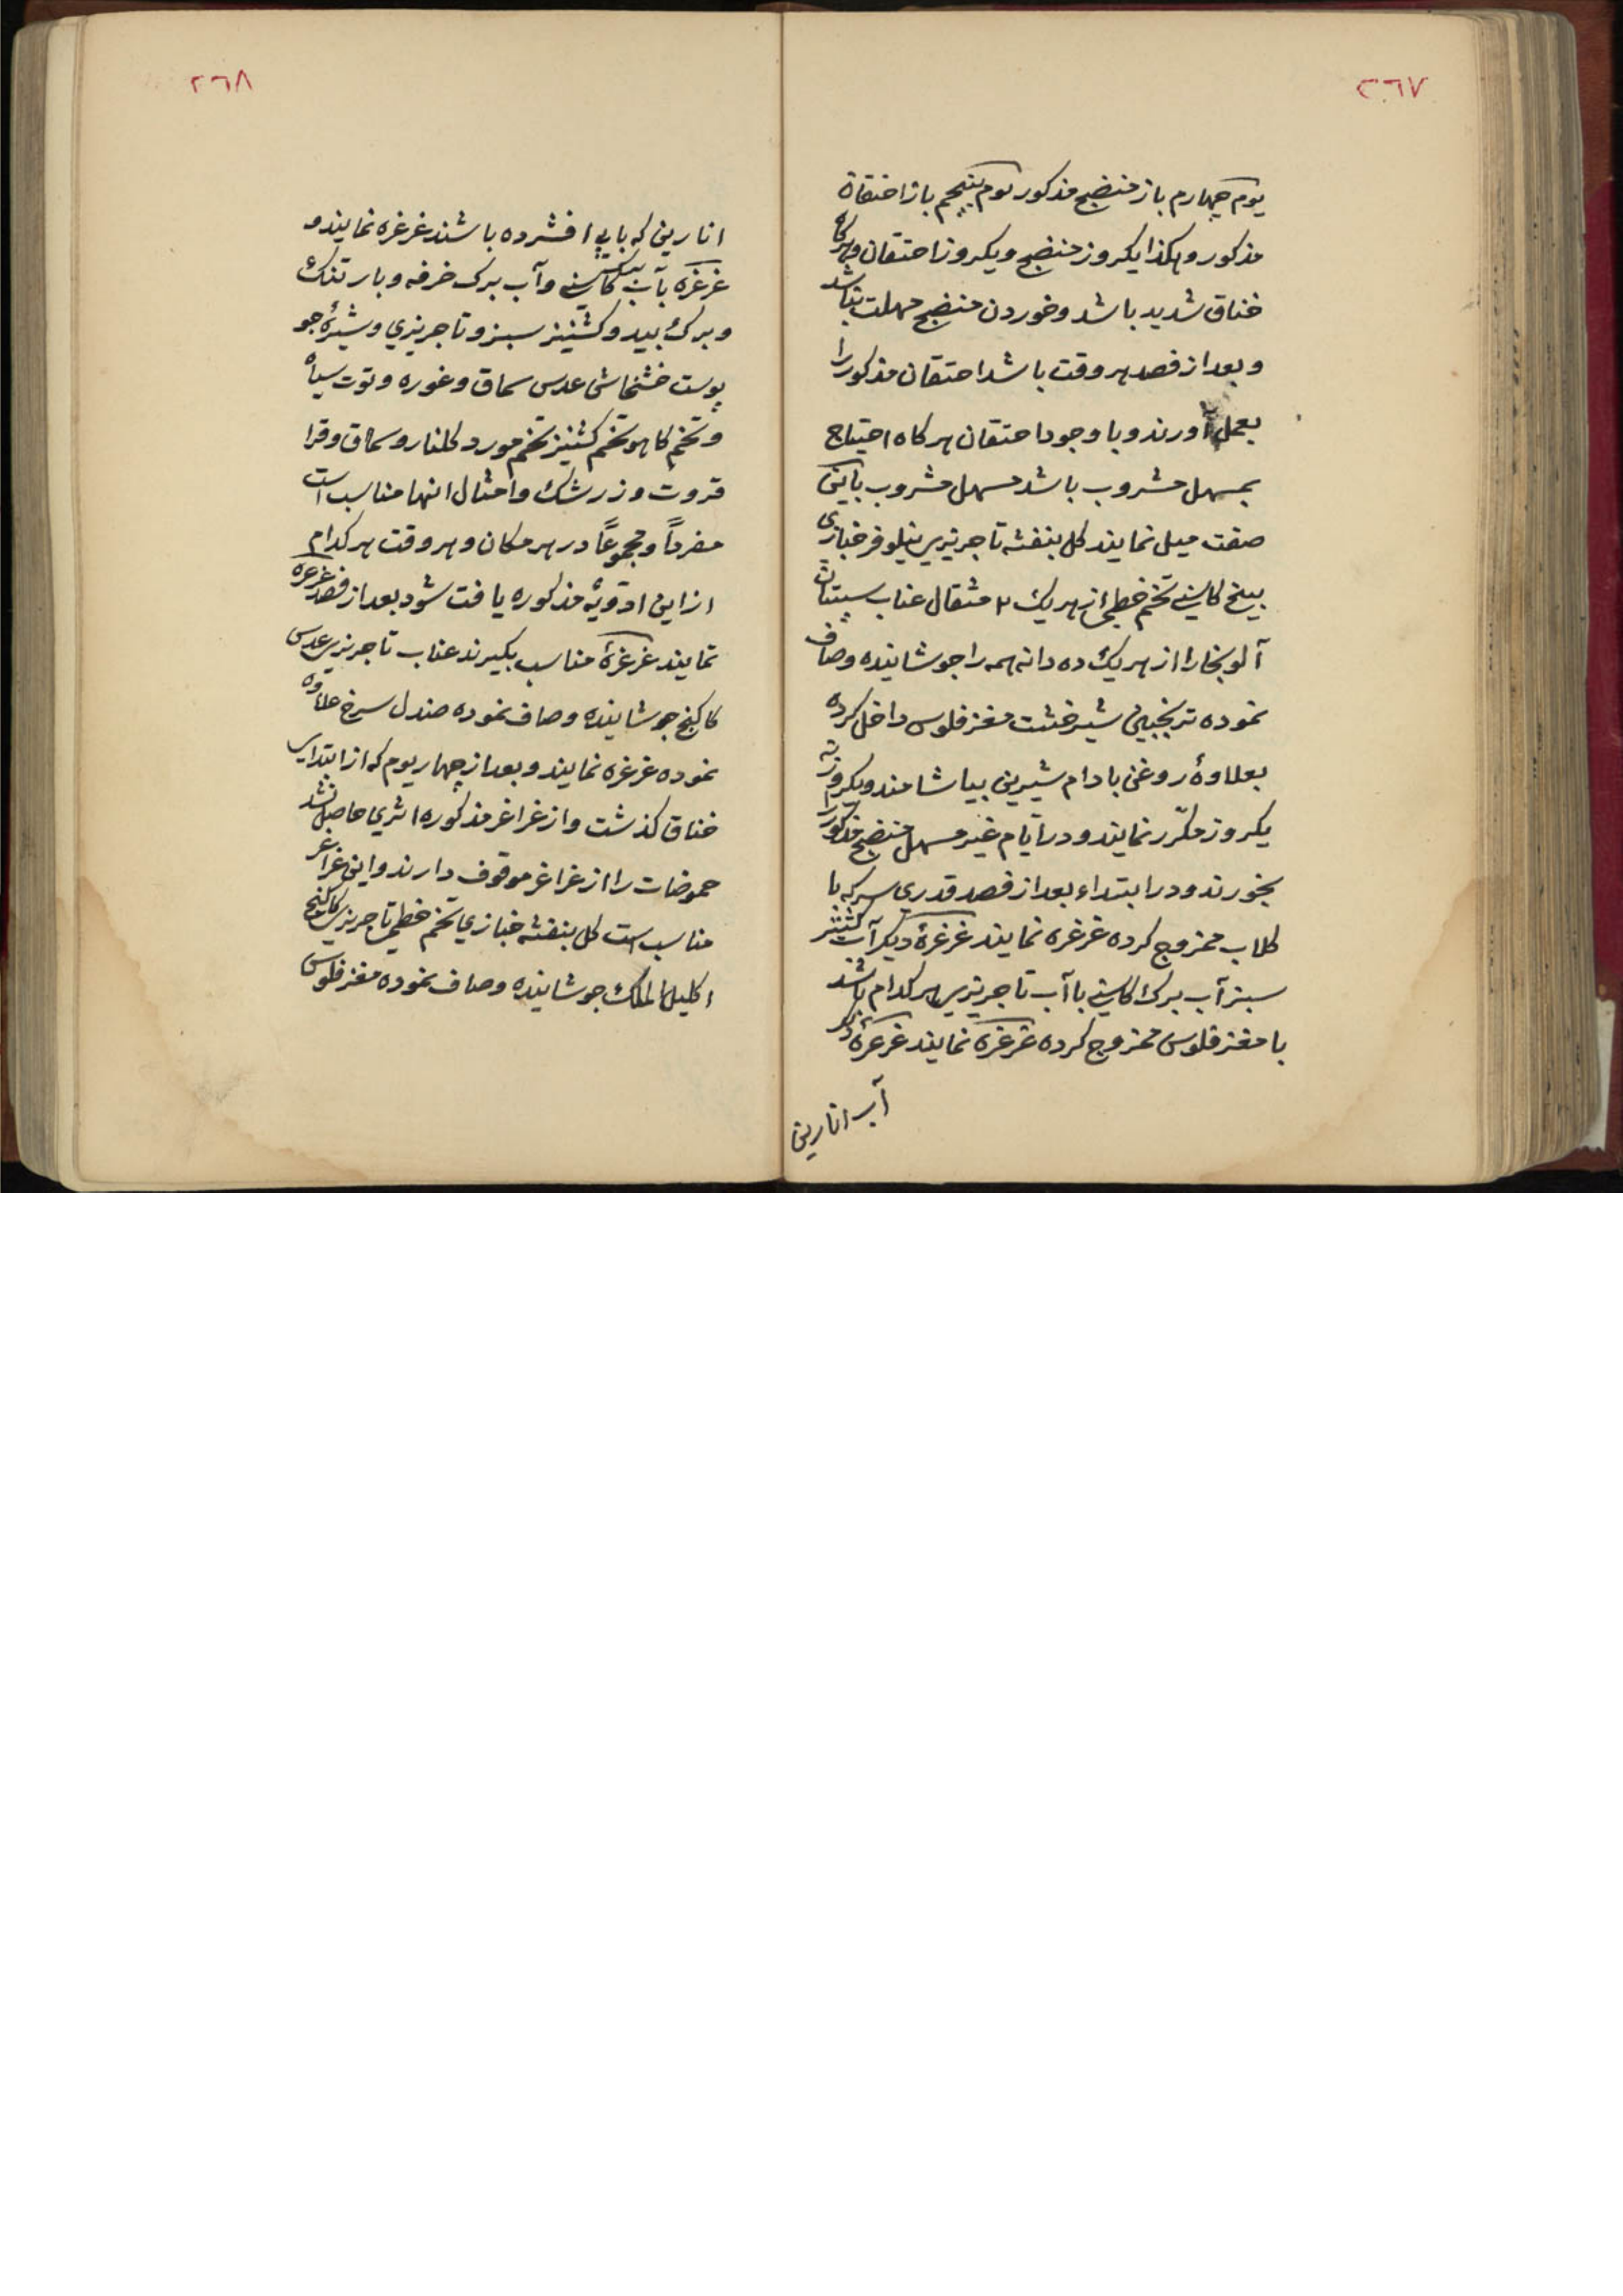 ٢٦٧
يوم چهارم باز منضج مذكور يوم پنجم باز احتقان
مذكور و هكذا يكروز منضج و يكروز احتقان و هركاه
خناق شديد باشد و خوردن منضج مهلت نباشد
و بعد از فصد هر وقت باشد احتقان مذكور را
بعمل آورند و با وجود احتقان هركاه احتياج
بمسهل مشروب باشد مسهل مشروب باين
صفت ميل نمايند كل بنفشه تاجريزى نيلوفر خبازى
بيخ كاسنى تخم خطمى از هريك ٢ مثقال عناب سپستان
آلو بخارا از هريك ده دانه همه را جوشانيده و صاف
نموده ترنجبين شيرخشت مغز فلوس داخل كرده
بعلاوۀ روغن بادام شيرين بياشامند و يكروز نه
يكروز مكرّر نمايند و در ايّام غير مسهل منضج مذكور را
بخورند و در ابتداء بعد از فصد قدري سركه با
كلاب ممزوج كرده غرغره نمايند غرغرۀ ديكر آب كشنيز
سبز آب برك كاسنى با آب تاجريزى هر كدام باشد
با مغز فلوس ممزوج كرده غرغره نمايند غرغرۀ ديكر
آب انارين
٢٦٨
انارين كه با پيه افشرده باشند غرغره نمايند و
غرغره بآب كاسنى و آب برك خرفه و بارتنك
و برك بيد و كشنيز سبز و تاجريزي و شيرۀ جو
پوست خشخاش عدس سماق و غوره و توت سياه
و تخم كاهو تخم كشنيز تخم مورد كلنار و سماق و قرا
قروت و زرشك و امثال انها مناسب است
مفرداً و مجموعاً در هر مكان و هر وقت هر كدام
از اين ادويۀ مذكوره يافت شود بعد از فصد غرغره
نمايند غرغرۀ مناسب بكيرند عناب تاجريزى عدس
كاكنج جوشانيده و صاف نموده صندل سرخ علاوه
نموده غرغره نمايند و بعد از چهار يوم كه از ابتداى
خناق كذشت و از غراغر مذكوره اثري حاصل نشد
حموضات را از غراغر موقوف دارند و اين غراغر
مناسب است كل بنفشه خبازي تخم خطمى تاجريزى كاكنج
اكليل الملك جوشانيده و صاف نموده مغز فلوس